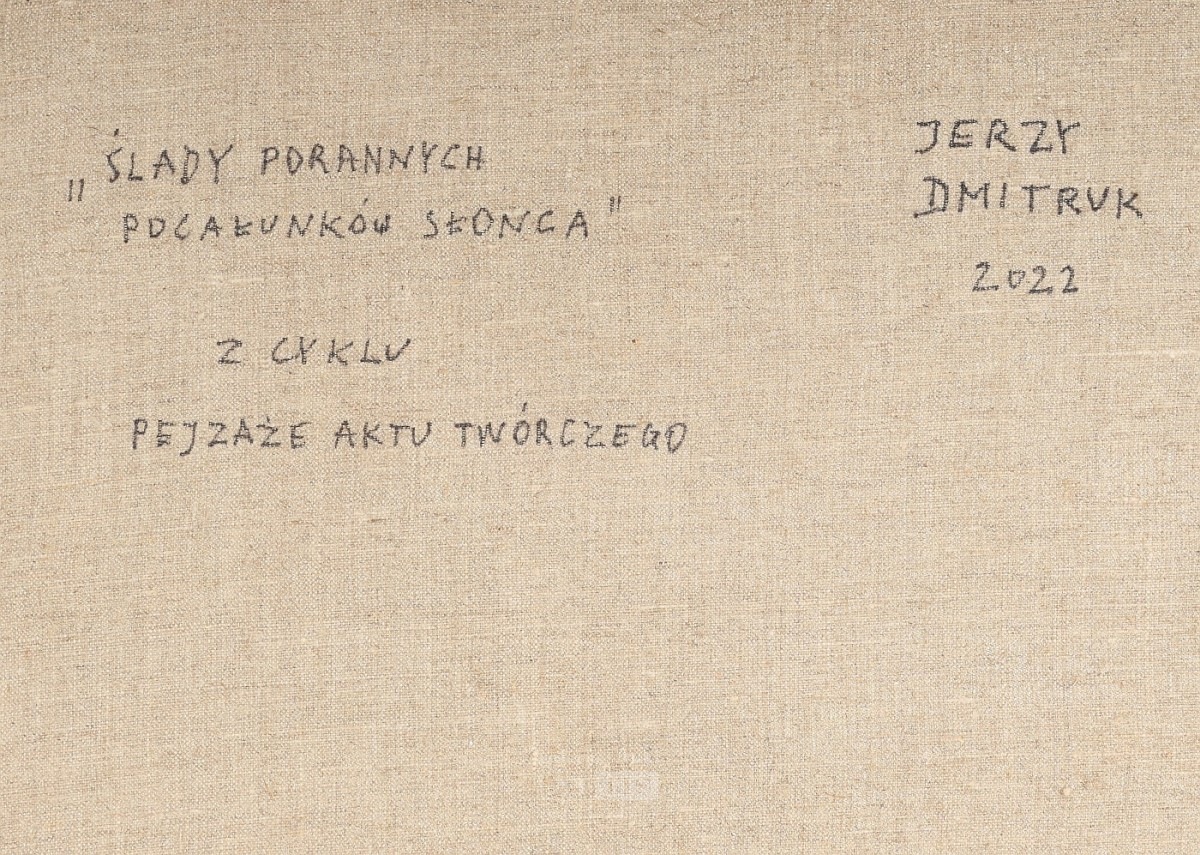 „ŚLADY PORANNYCH
POCAŁUNKÓW SŁONCA"
Z CYKLU
PEJZAŻE AKTU TWÓRCZEGO
JERZY
DMITRUK
2022